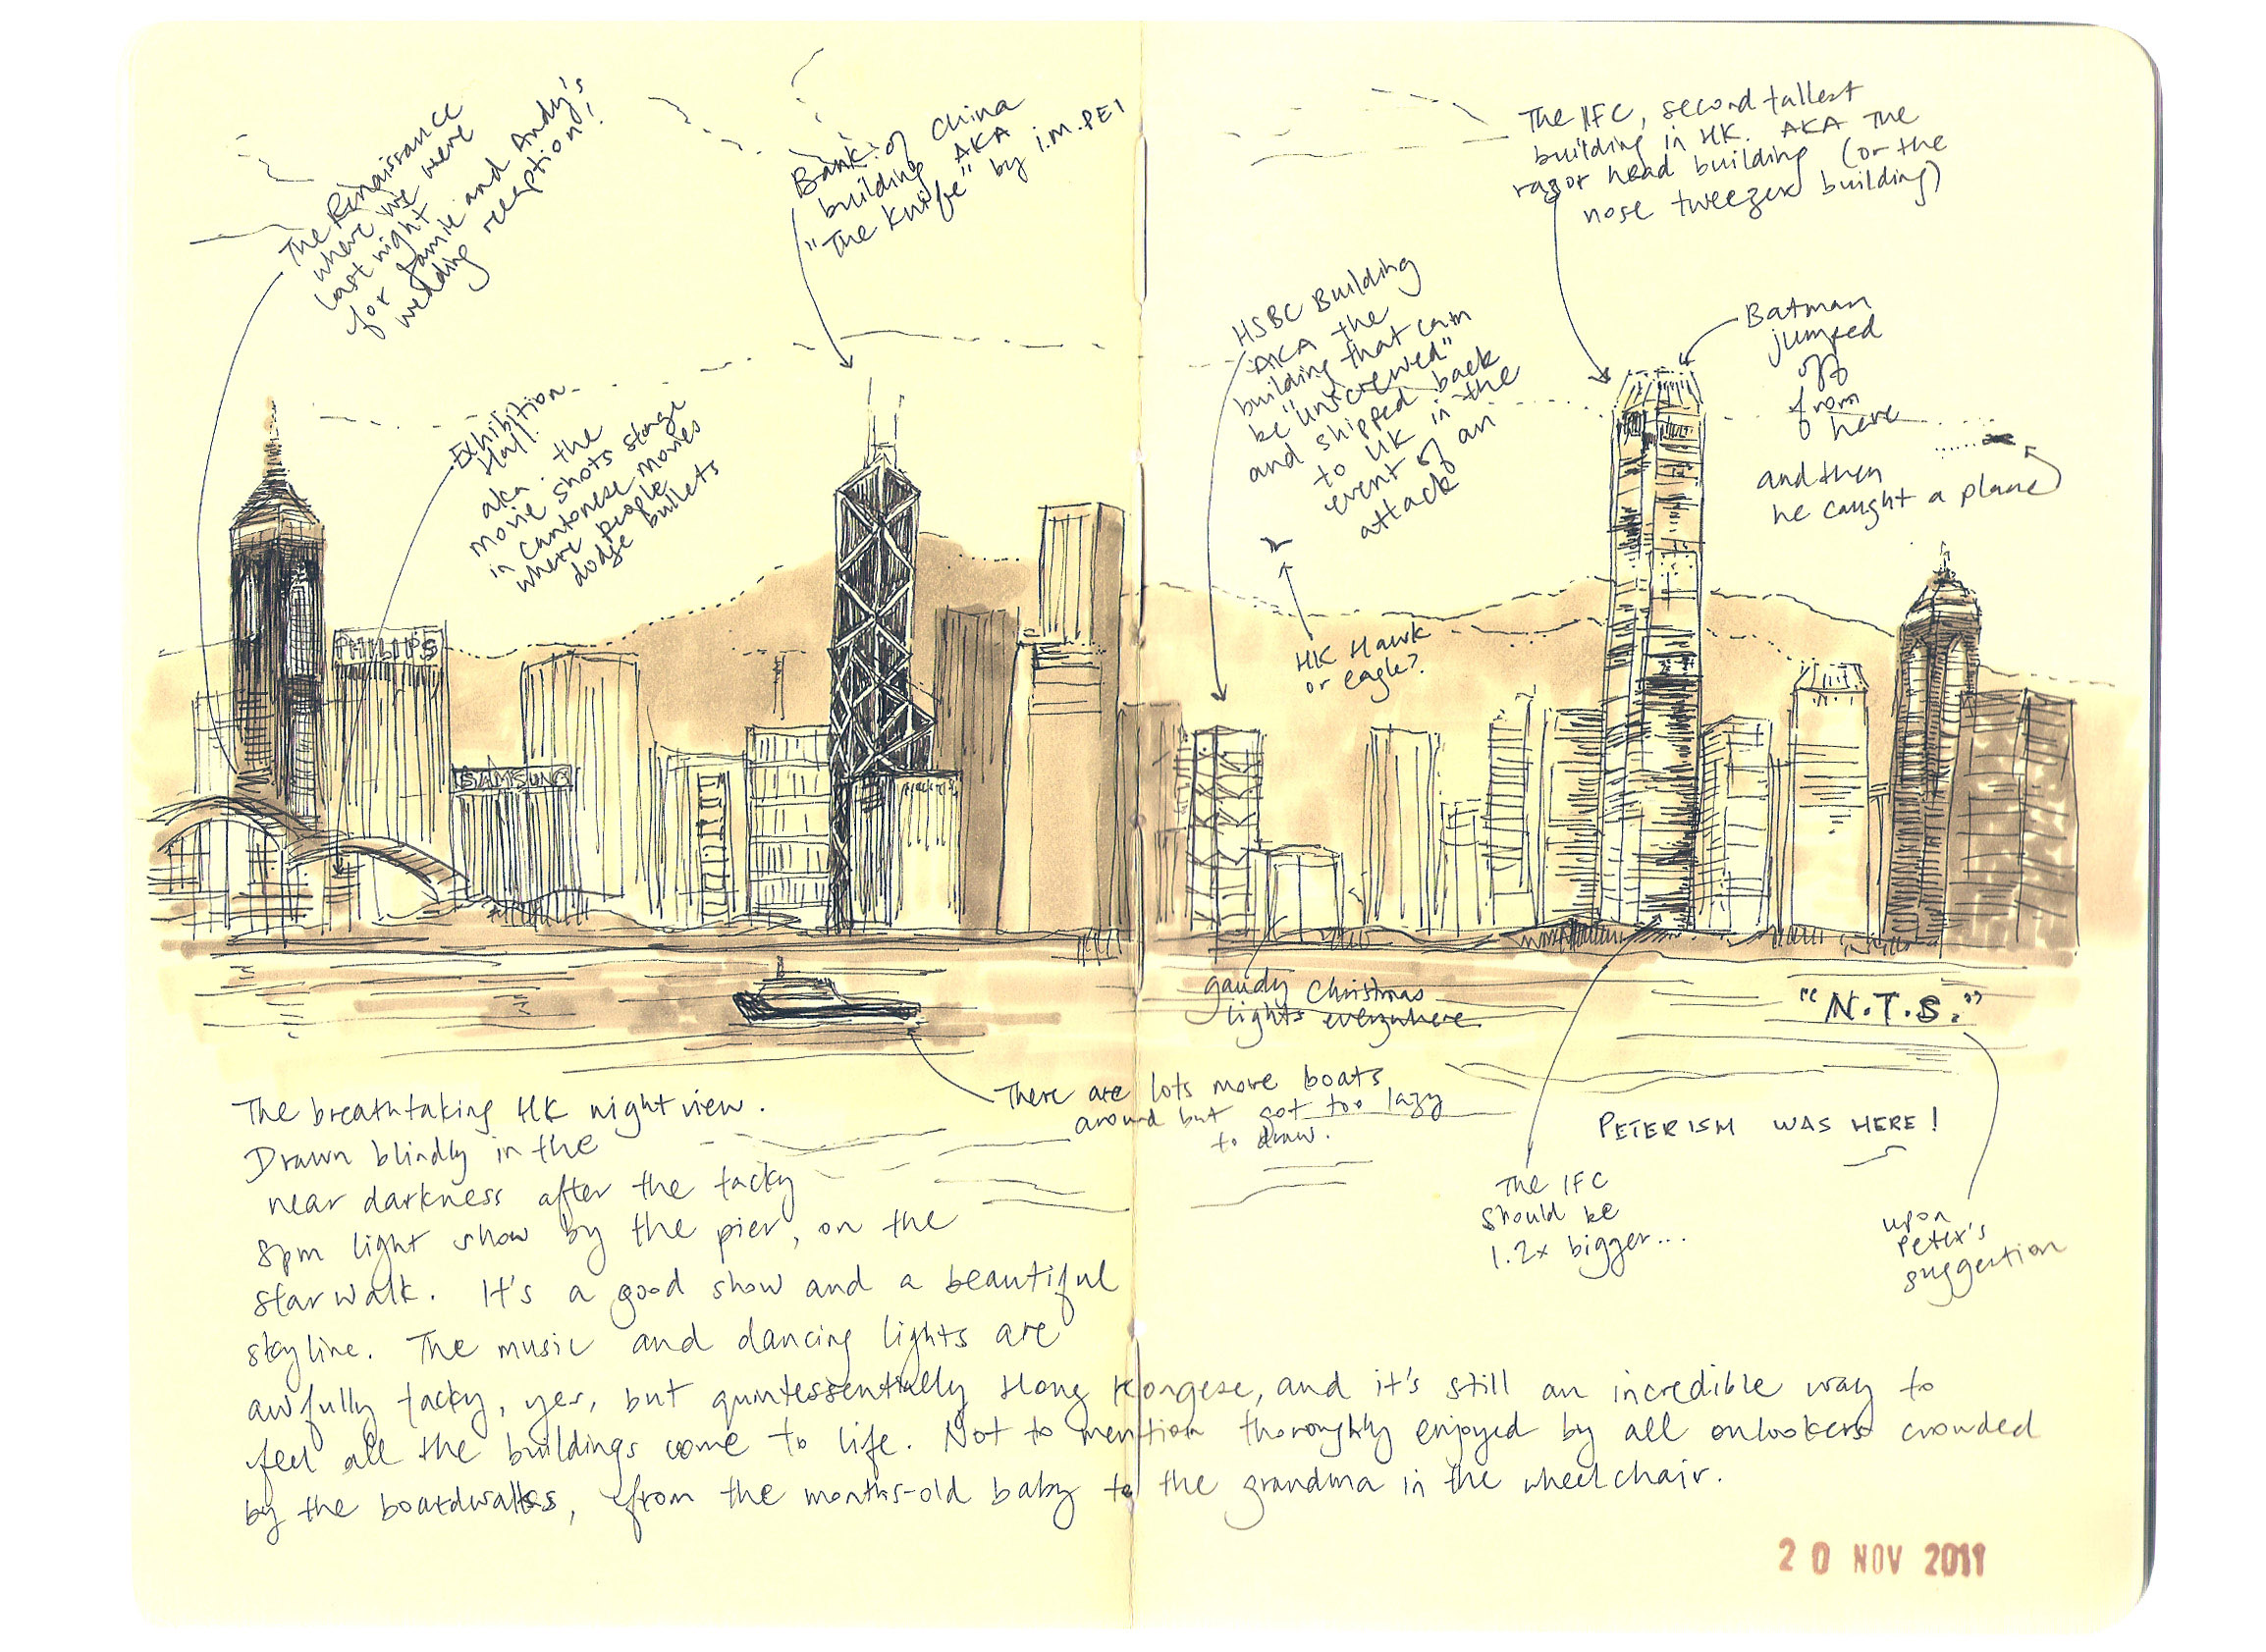 The Renaissance
where we were
last night
for Jamie and Andy's
wedding reception!
Exhibition
Hall.
aka. the
movie shots stage
in Cantonese movies
where people
dodge bullets
Bank of China
building AKA
"The Knife" by I.M.PEI
HSBC Building
AKA the
building that can
be "unscrewed"
and shipped back
to UK in the
event of an
attack
The IFC, second tallest
building in HK. AKA The
razor head building (or the
nose tweezer building)
Batman
jumped
off
from
here
and then
he caught a plane
HK Hawk
or eagle?
PHILIPS
SAMSUNG
gaudy Christmas
lights everywhere
"N.T.S."
There are lots more boats
around but got too lazy
to draw.
PETERISM WAS HERE!
The IFC
should be
1.2x bigger...
upon
Peter's
suggestion
The breathtaking HK night view.
Drawn blindly in the
near darkness after the tacky
8pm light show by the pier, on the
star walk. It's a good show and a beautiful
skyline. The music and dancing lights are
awfully tacky, yes, but quintessentially Hong Kongese, and it's still an incredible way to
feel all the buildings come to life. Not to mention thoroughly enjoyed by all onlookers crowded
by the boardwalks, from the months-old baby to the grandma in the wheelchair.
20 NOV 2011